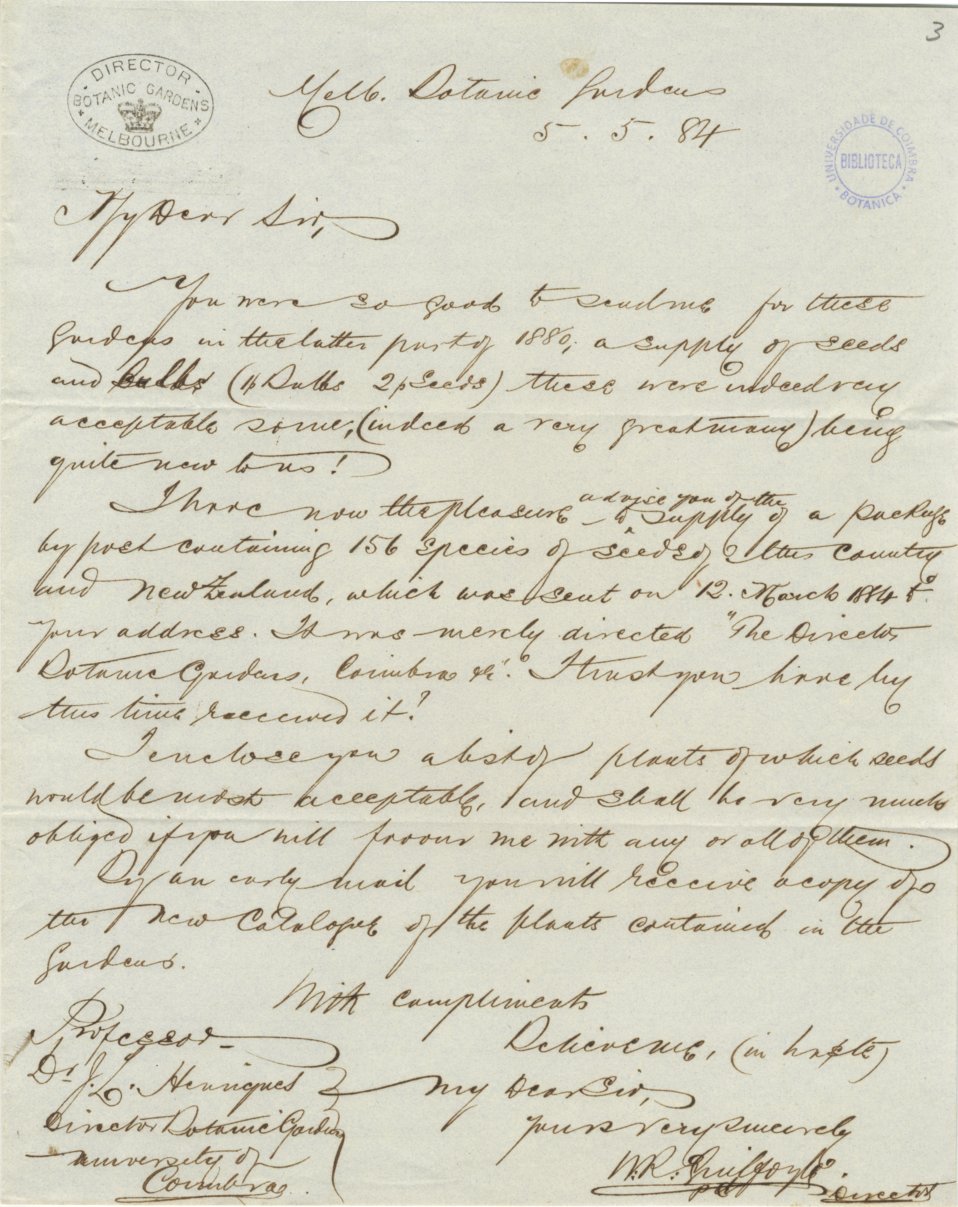 3
DIRECTOR
BOTANIC GARDENS
MELBOURNE
UNIVERSIDADE DE COIMBRA
BIBLIOTECA
BOTANICA
Melb. Botanic Gardens
5. 5. 84
My Dear Sir,
You were so good to send me for these
Gardens in the latter part of 1880, a supply of seeds
and bulbs (1p Bulbs 2p Seeds) these were indeed very
acceptable some, (indeed a very great many) being
quite new to us!
I have now the pleasure to advise you of the supply of a package
by post containing 156 species of seeds of this Country
and New Zealand, which was sent on 12. March 1884 to
your address. It was merely directed "The Director
Botanic Gardens, Coimbra &c". I trust you have by
this time received it!
I enclose you a list of plants of which seeds
would be most acceptable, and shall be very much
obliged if you will favour me with any or all of them.
By an early mail you will receive a copy of
the new Catalogue of the plants contained in the
Gardens.
With compliments
Believe me, (in haste)
My Dear Sir,
Yours very sincerely
W.R. Guilfoyle.
Director
Professor
Dr J.L. Henriques
Director Botanic Gardens
University of
Coimbra.